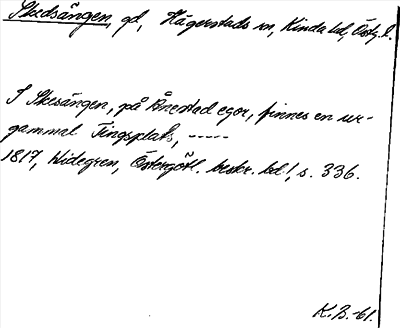 Skedsängen, gd, Hägerstads sn, Kinda hd, Östg. l.
I Skesängen, på Ånestad egor, finnes en ur-
gammal Tingsplats, -----
1817, Widegren, Östergötl. beskr. bd 1, s. 336.
K.B.-61.